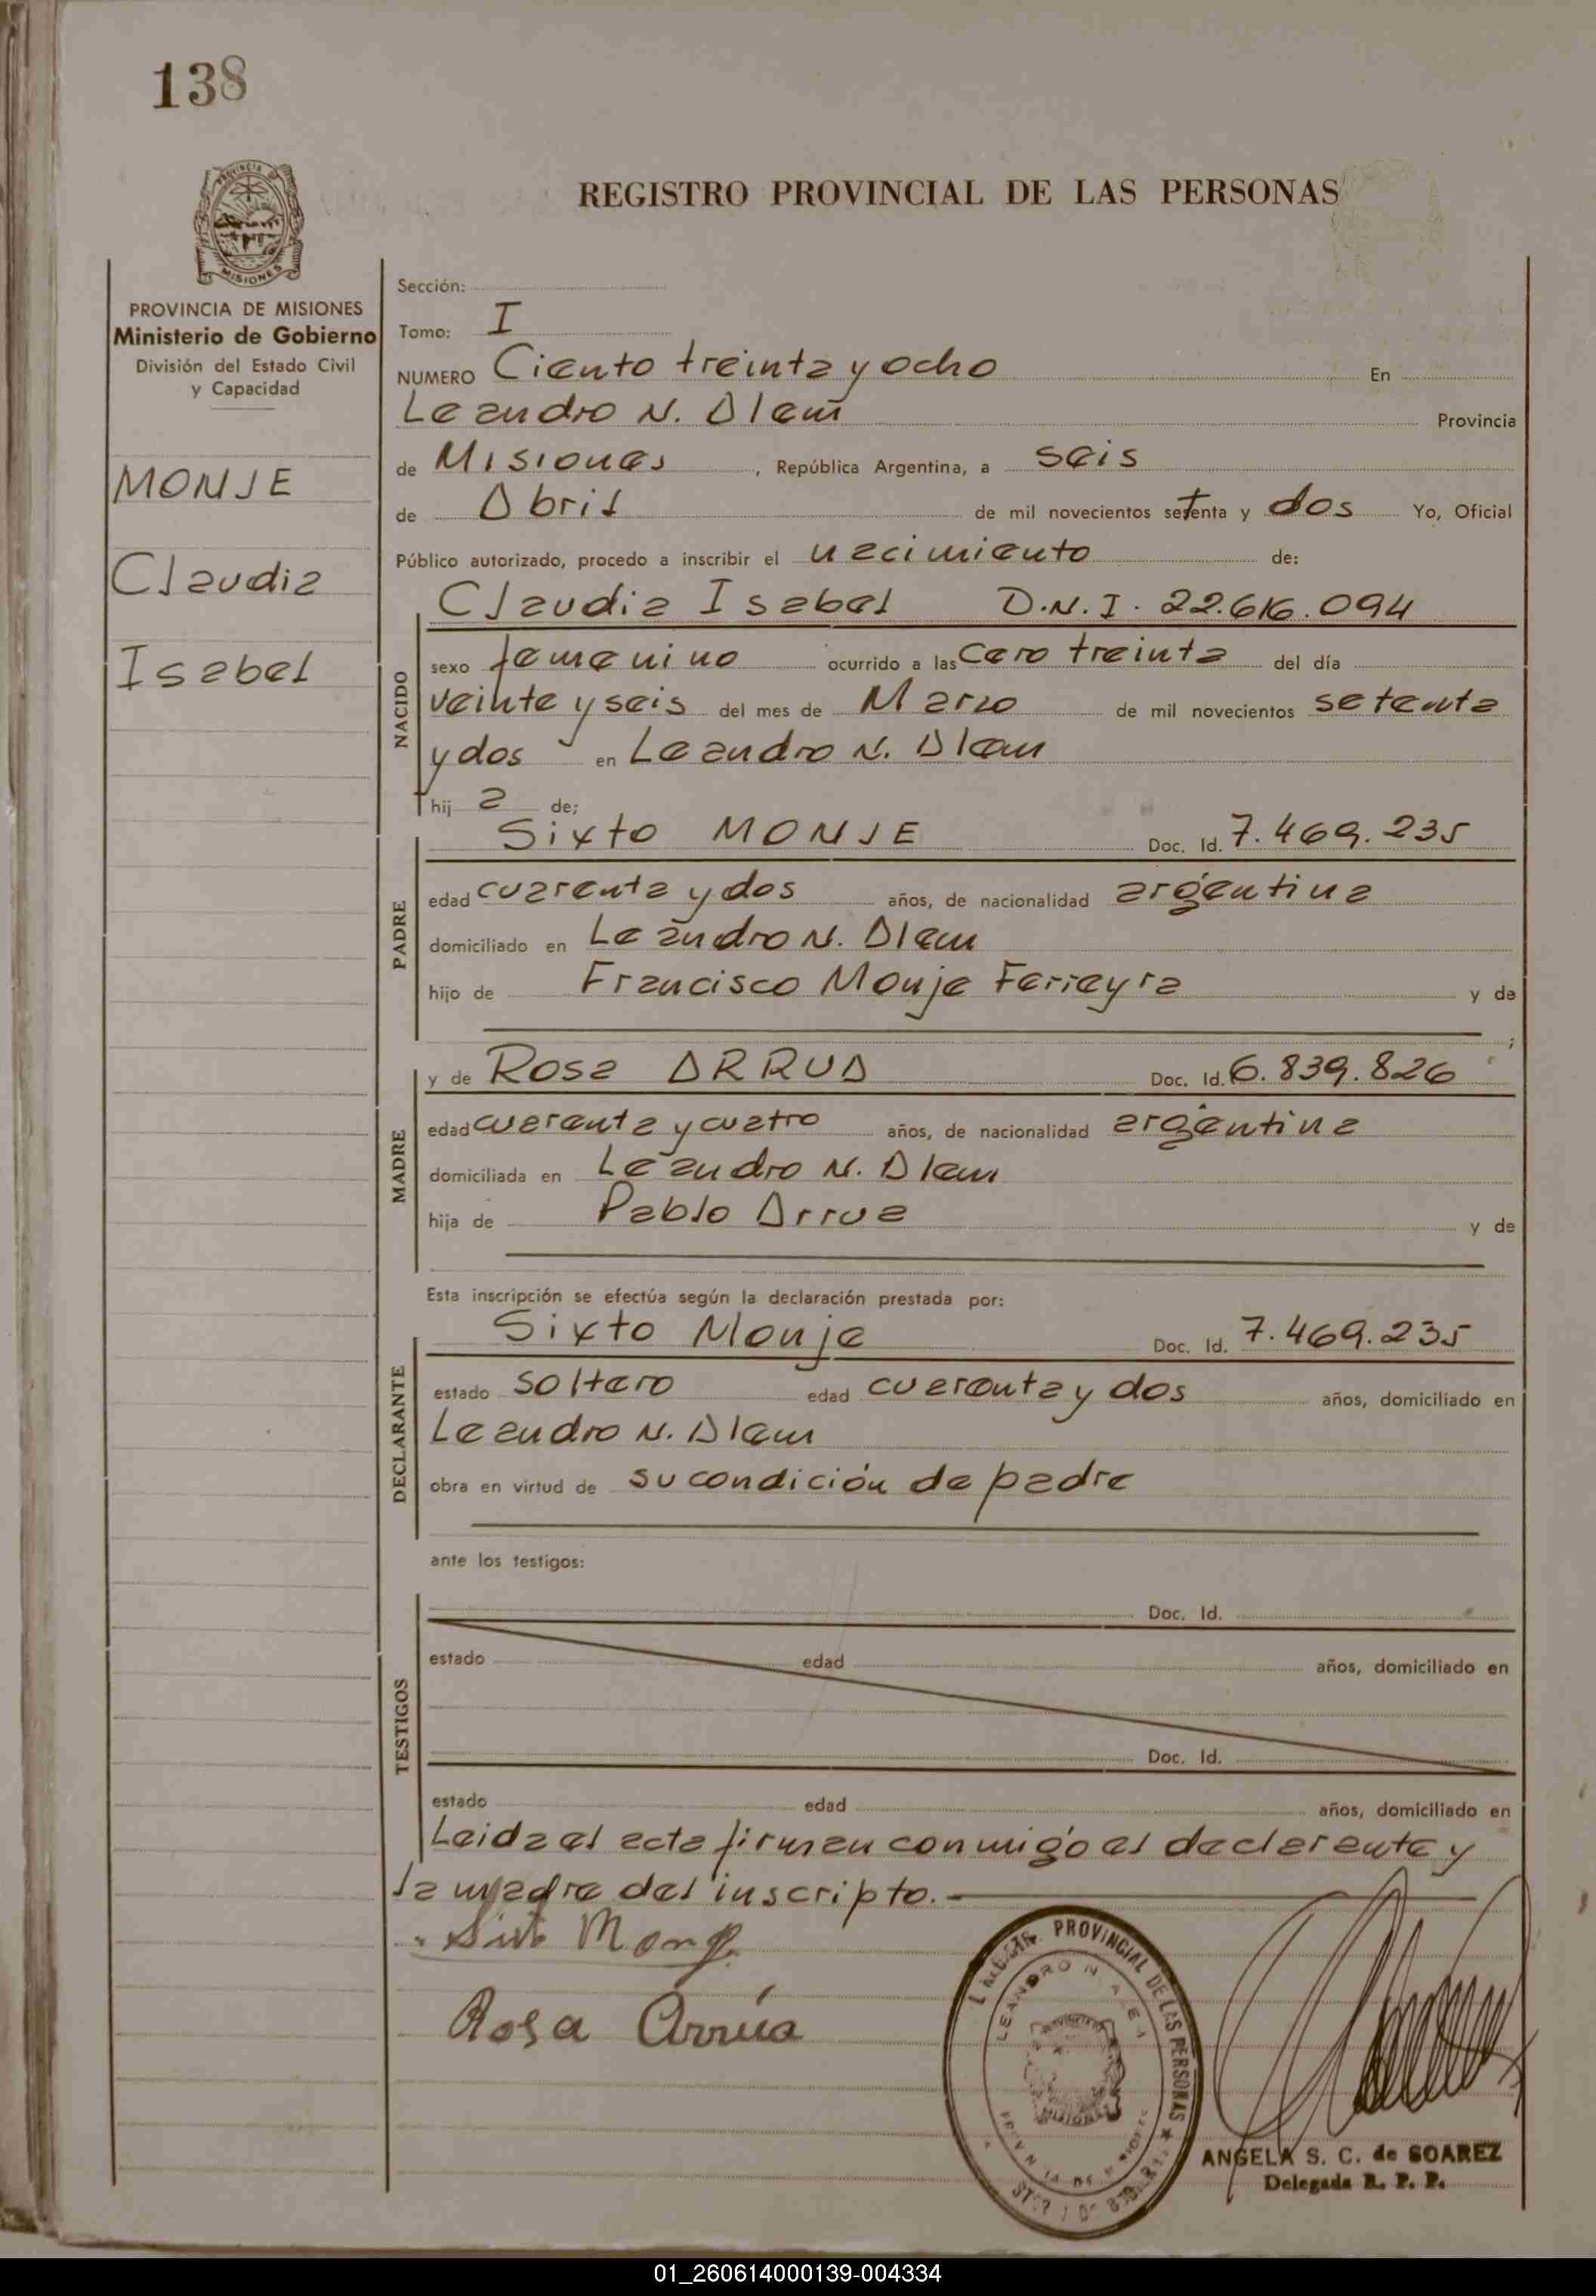 138
PROVINCIA DE
MISIONES
REGISTRO PROVINCIAL DE LAS PERSONAS
PROVINCIA DE MISIONES
Ministerio de Gobierno
División del Estado Civil
y Capacidad
MONJE
Claudia
Isabel
Sección:
Tomo: I
NUMERO Ciento treinta y ocho En
Leandro N. Alem Provincia
de Misiones, República Argentina, a seis
de Abril de mil novecientos setenta y dos Yo, Oficial
Público autorizado, procedo a inscribir el nacimiento de:
Claudia Isabel D.N.I. 22.616.094
NACIDO
sexo femenino ocurrido a las Cero treinta del día
veinte y seis del mes de Marzo de mil novecientos setenta
y dos en Leandro N. Alem
hij a de;
Sixto MONJE Doc. Id. 7.469.235
PADRE
edad cuarenta y dos años, de nacionalidad argentina
domiciliado en Leandro N. Alem
hijo de Francisco Monje Ferreyra y de
;
y de Rosa ARRUA Doc. Id. 6.839.826
MADRE
edad cuarenta y cuatro años, de nacionalidad argentina
domiciliada en Leandro N. Alem
hija de Pablo Arrua y de
Esta inscripción se efectúa según la declaración prestada por:
Sixto Monje Doc. Id. 7.469.235
DECLARANTE
estado soltero edad cuarenta y dos años, domiciliado en
Leandro N. Alem
obra en virtud de su condición de padre
ante los testigos:
Doc. Id.
TESTIGOS
estado edad años, domiciliado en
Doc. Id.
estado edad años, domiciliado en
Leida el acta firman conmigo el declarante y
la madre del inscripto.-
Rosa Arrúa
PROVINCIAL DE LAS PERSONAS
LEANDRO N ALEM
MISIONES
ANGELA S. C. de SOAREZ
Delegada R. P. P.
01_260614000139-004334